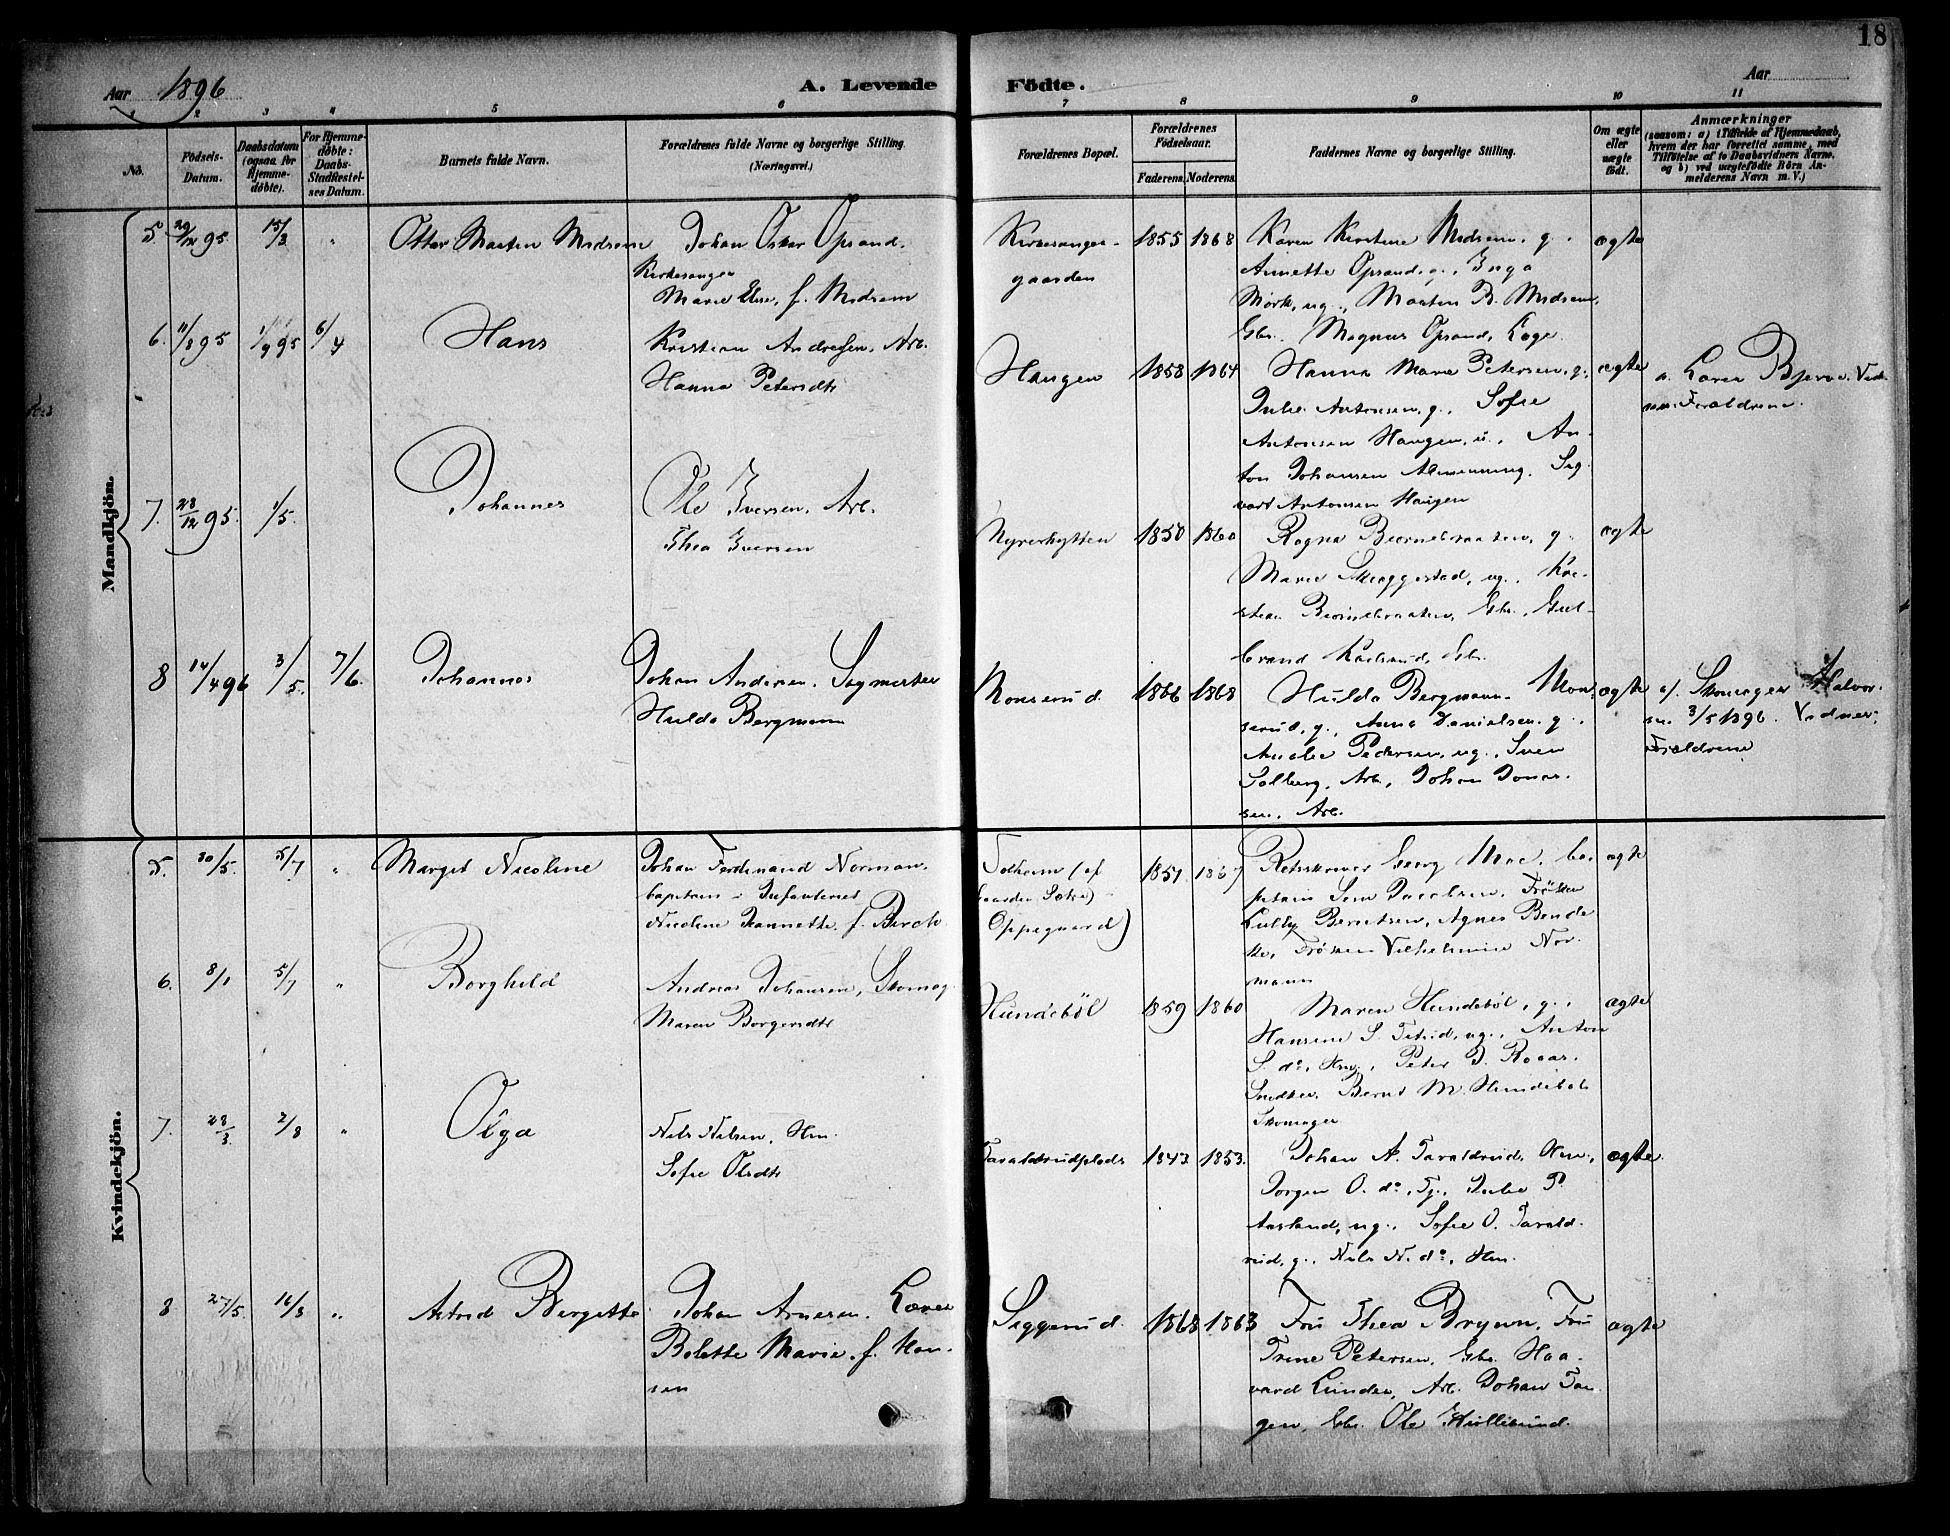 18
Aar 1896
A. Levende Födte.
Aar
1 2 3 4 5 6 7 8 9 10 11
No.
Födsels-Datum.
Daabsdatum (ogsaa for Hjemmedöbte).
For Hjemmedöbte: Daabs-Stadfæstelses Datum.
Barnets fulde Navn.
Forældrenes fulde Navne og borgerlige Stilling. (Næringsvei.)
Forældrenes Bopæl.
Forældrenes Födselsaar.
Faderens. Moderens.
Faddernes Navne og borgerlige Stilling.
Om ægte eller uægte födt.
Anmærkninger
(saasom: a) i Tilfælde af Hjemmedaab, hvem der har forrettet samme, med Tilföielse af to Daabsvidners Navne, og b) ved uægtefödte Börn Anmelderens Navn m. V.)
Mandkjön.
5 29/12 95. 15/3 "
Otter Marten Midsem
Johan Oskar Opsand.
Kirkesanger
Marie Else, f. Midsem
Kirkesanger-
gaarden
1855 1868
Karen Kirstine Midsem, g.
Annette Opsand, g., Inga
Mørk, ug., Marten B. Midsem,
Gbr. Magnus Opsand, Læge
ægte
6. 11/8 95 1/9 95 6/4
Hans
Kristian Andresen, Arb.
Hanna Petersdtr
Haugen
1858 1864
Hanna Marie Petersen, g.,
Julie Antonsen, g., Sofie
Antonsen Haugen, u., An-
ton Johansen Almenning, Sig-
vart Antonsen Haugen
ægte
a. Karen Bjerve. Vid-
ner: Forældrene.
7. 28/12 95. 1/5.
Johannes
Ole Iversen, Arb.
Thea Iversen
1850 1860
Ragna Bjørnebraaten, g.
Marie Skoggestad, ug., Kri-
stian Bjørnebraaten, Gbr., Gul-
brand Karlsrud, Gbr.
ægte
8 14/4 96 3/5. 7/6.
Johannes
Johan Andersen, Sagmester
Hulda Bergmann
Monserud.
1866 1868
Hulda Bergmann Mon-
serud, g., Anna Danielsen, g.,
Amalie Pedersen, ug., Sven
Solberg, Arb., Johan Jonas-
sen, Arb.
ægte
a/. Skomager Halvor-
sen 3/5 1896. Vidner:
Forældrene
Kvindekjön.
5. 30/5. 5/7 "
Margit Nicoline
Johan Ferdinand Norman.
Kaptein i Infanteriet
Nicoline Jeannette, f. Birch
Solheim (af
Gaarden Sætre)
Oppegaard)
1851. 1867
Retsskriver Georg Moe, Ka-
ptein Sem Jacobsen, Frøken
Lully Berntsen, Agnes Bendi-
ke, Frøken Vilhelmine Nor-
mann
ægte
6. 8/1 5/7 "
Borghild
Andreas Johansen, Skomag.
Maren Borgersdtr
Hundebøl
1859 1860
Maren Hundebøl, g.,
Hansine S. Tetrid, ug., Anton
S. do, Hm., Peter D. Roaas.
Snedker, Bernt M. Hundebøl
Skomager
ægte
7. 28/3. 2/8 "
Olga
Nils Nilsen, Hm.
Sofie Olsdtr
Taraldsrudplads
1843. 1853.
Johan A. Taraldrud, Hm.,
Jørgen O. do, Tj., Julie P.
Aasland, ug., Sofie O. Tarald-
rud, g., Nils N. do, Hm.
ægte.
8 27/5. 16/8 "
Astrid Bergitte
Johan Arnesen. Lærer
Bolette Marie, f. Han-
sen
Siggerud.
1868 1863
Fru Thea Brynn, Fru
Trine Petersen, Gbr. Haa-
vard Lunder, Arb. Johan Tan-
gen, Gbr. Ole Kvillesund.
ægte